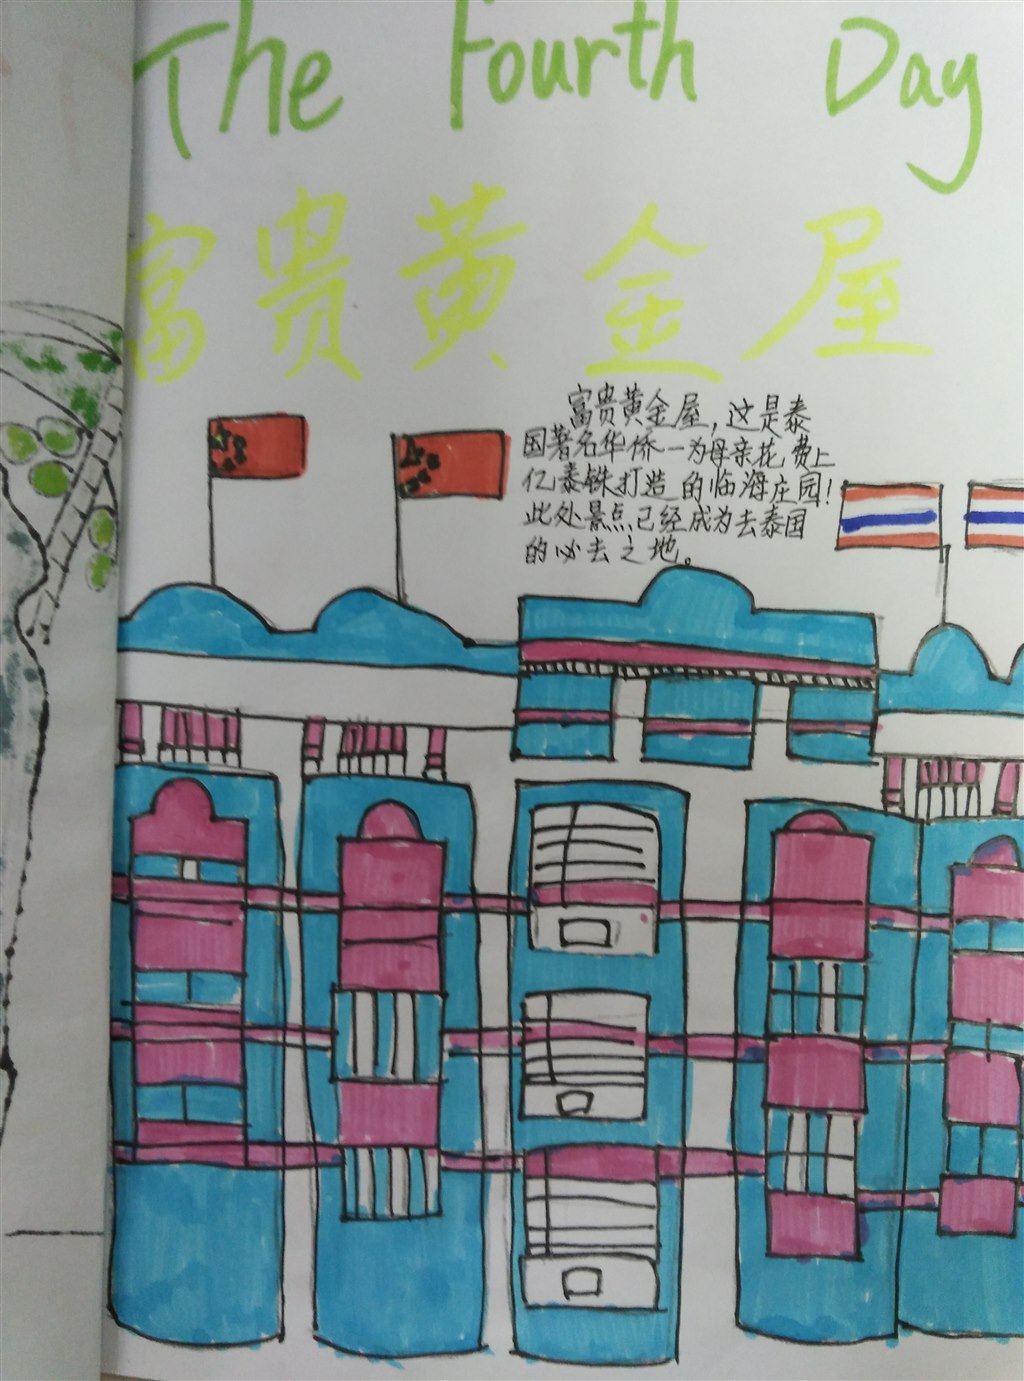 The Fourth Day
富贵黄金屋
富贵黄金屋，这是泰
国著名华侨一为母亲花费上
亿泰铢打造的临海庄园！
此处景点已经成为去泰国
的必去之地。